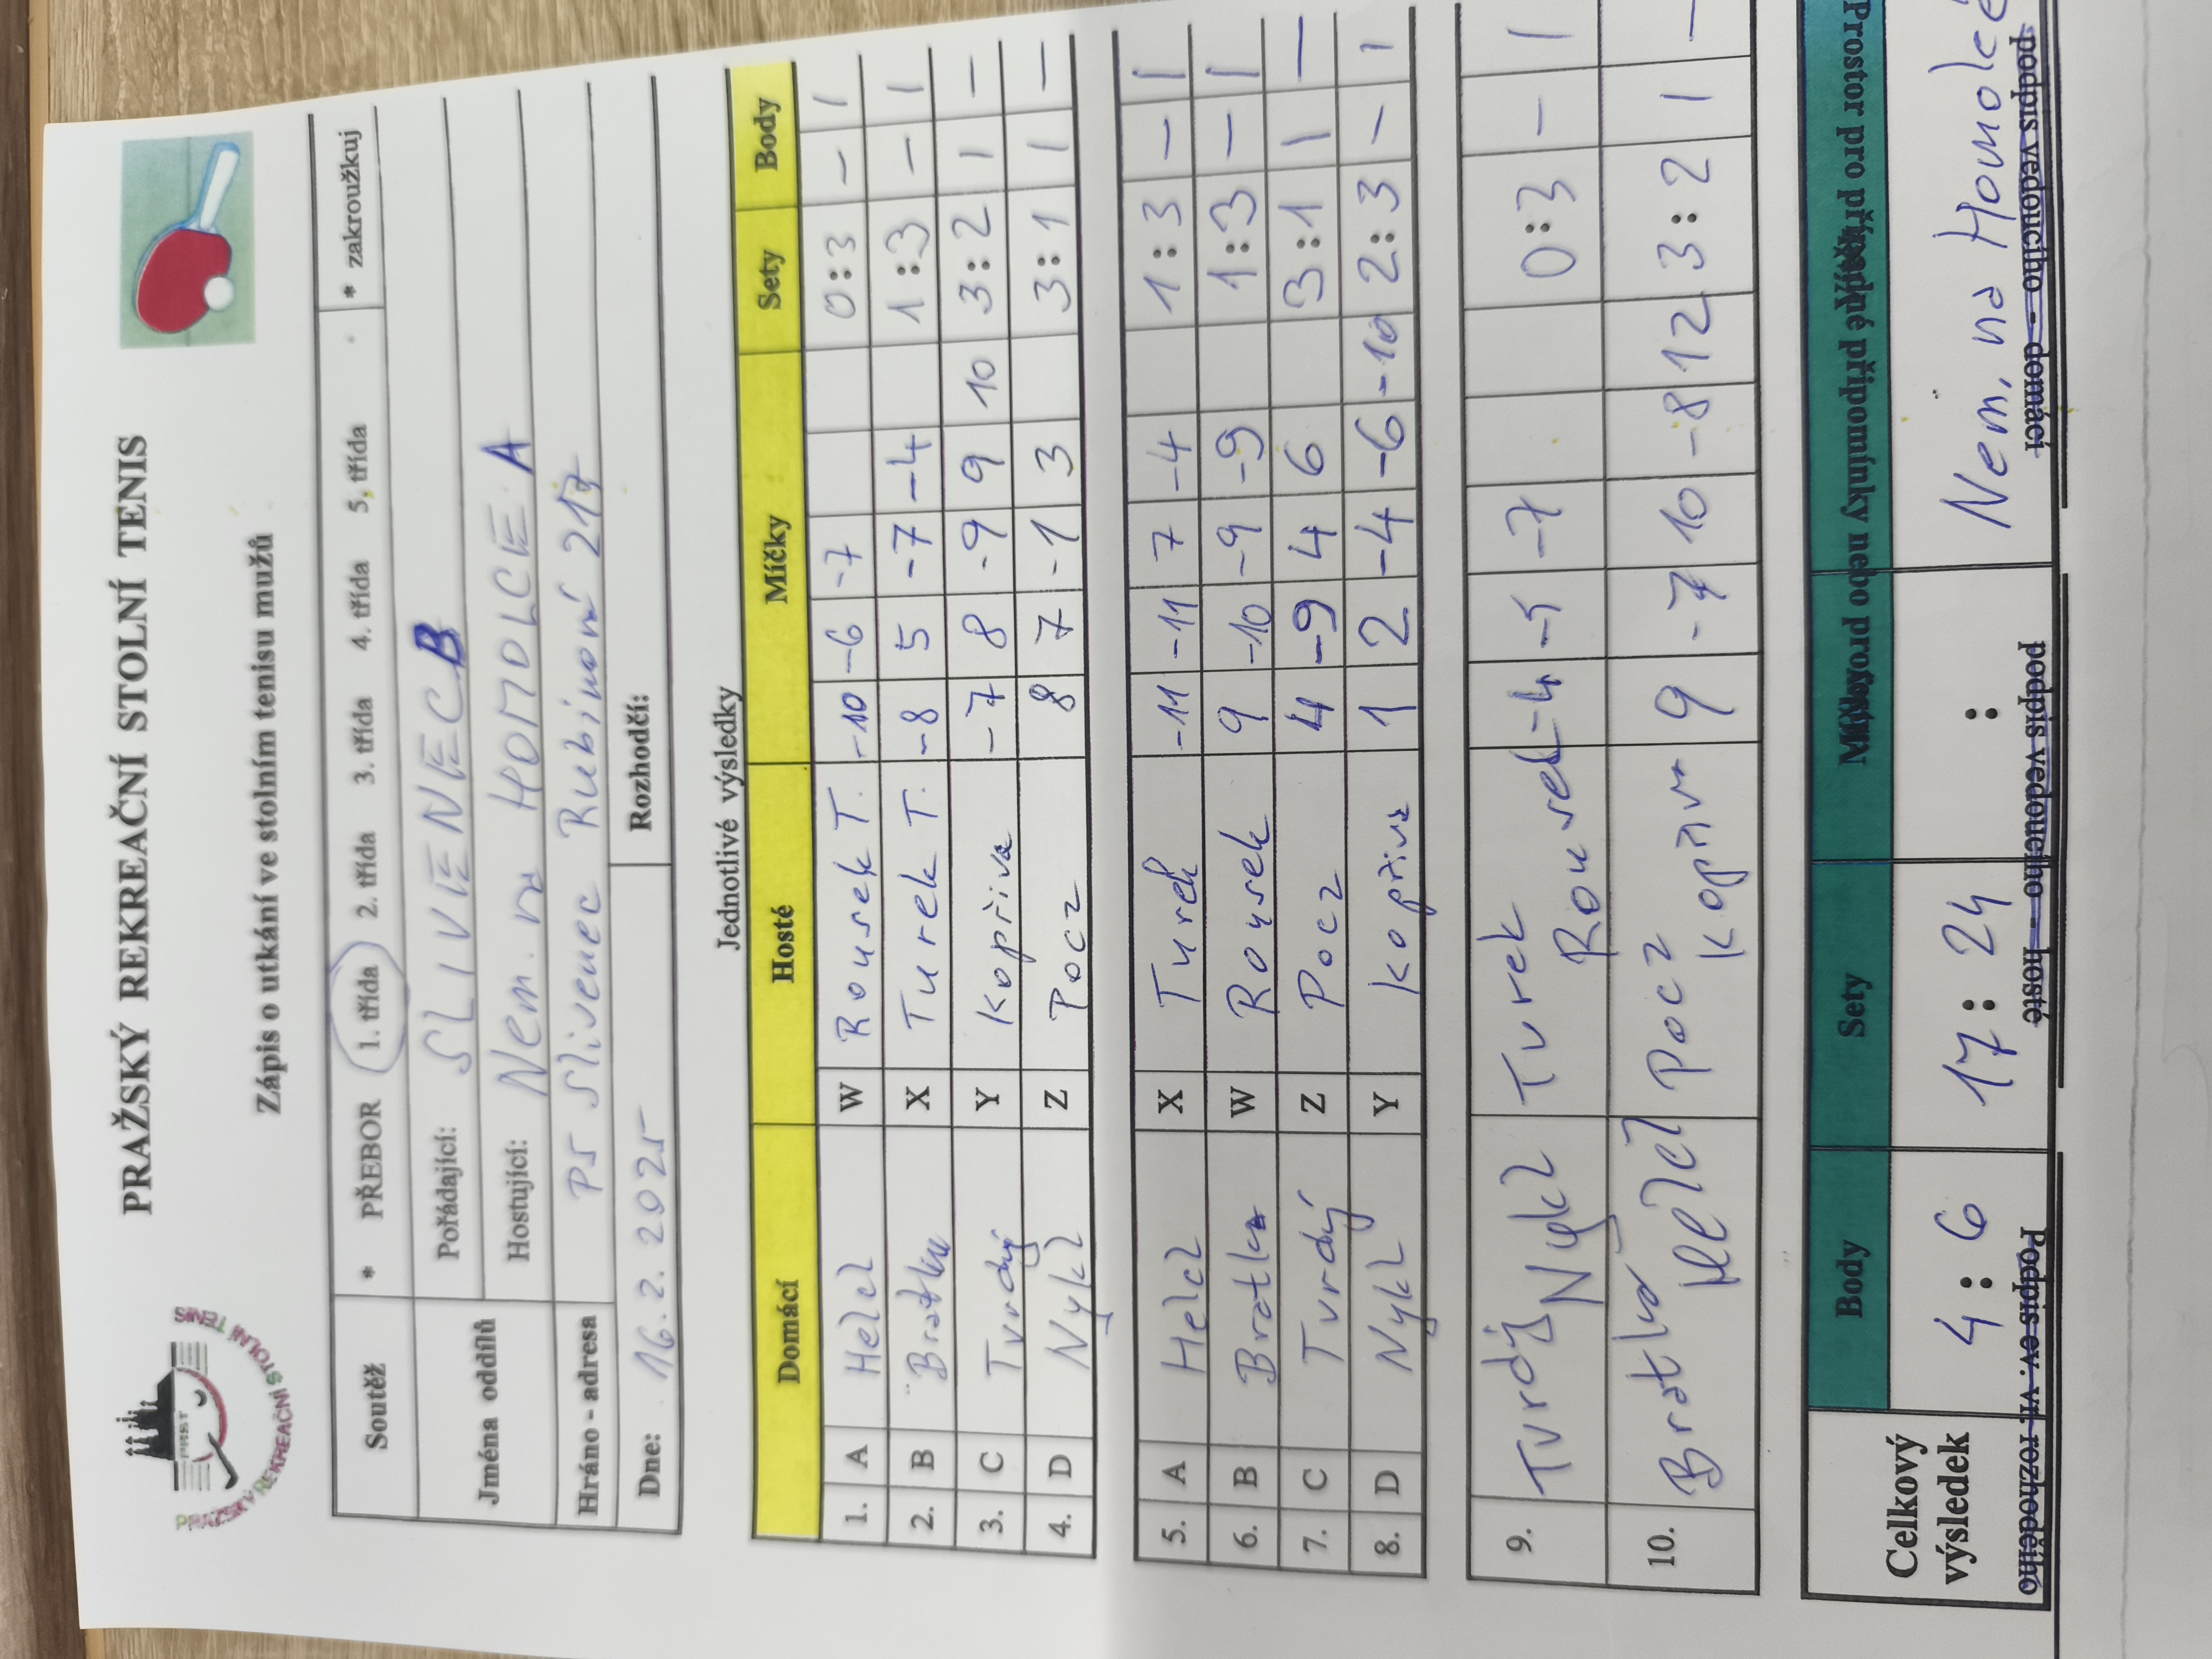 PRAŽSKÝ REKREAČNÍ STOLNÍ TENIS
PRST
PRAŽSKÝ REKREAČNÍ STOLNÍ TENIS
Zápis o utkání ve stolním tenisu mužů
Soutěž * PŘEBOR 1. třída 2. třída 3. třída 4. třída 5. třída * zakroužkuj
Jména oddílů Pořádající: SLIVENEC B
Hostující: Nem. na HOMOLCE A
Hráno - adresa P5 Slivenec Rubínová 217
Dne: 16.2.2025 Rozhodčí:
Jednotlivé výsledky
Domácí Hosté Míčky Sety Body
1. A Helcl W Rousek T. -10 -6 -7 0:3 – 1
2. B Bratka X Turek T. -8 5 -7 -4 1:3 – 1
3. C Tvrdý Y Kopřiva -7 8 -9 9 10 3:2 1 –
4. D Nykl Z Pocz 8 7 -1 3 3:1 1 –
5. A Helcl X Turek -11 -11 7 -4 1:3 – 1
6. B Bratka W Rousek 9 -10 -9 -9 1:3 – 1
7. C Tvrdý Z Pocz 4 -9 4 6 3:1 1 –
8. D Nykl Y Kopřiva 1 2 -4 -6 -10 2:3 – 1
9. Tvrdý Nykl Turek Rousek -4 -5 -7 0:3 – 1
10. Bratka Helcl Pocz Kopřiva 9 -7 10 -8 12 3:2 1 –
Celkový výsledek Body Sety Prostor pro případné připomínky nebo protest
4:6 17:24 : Nem. na Homolce
Podpis ev. vr. rozhodčího podpis vedoucího - hosté podpis vedoucího - domácí